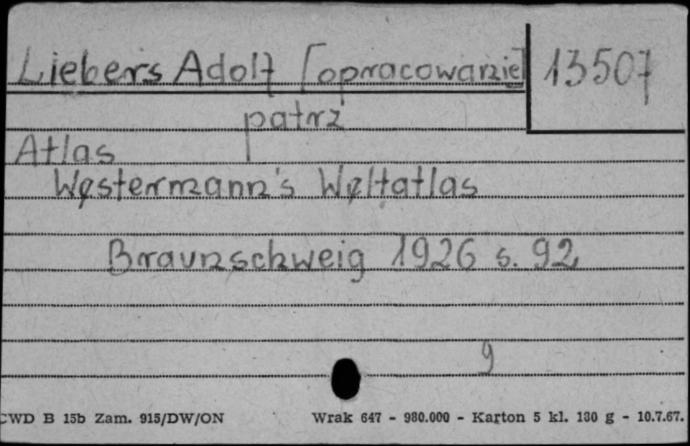 Liebers Adolf [opracowanie]
13507
patrz
Atlas
Westermann's Weltatlas
Braunschweig 1926 s. 92
9
CWD B 15b Zam. 915/DW/ON Wrak 647 - 980.000 - Karton 5 kl. 130 g - 10.7.67.